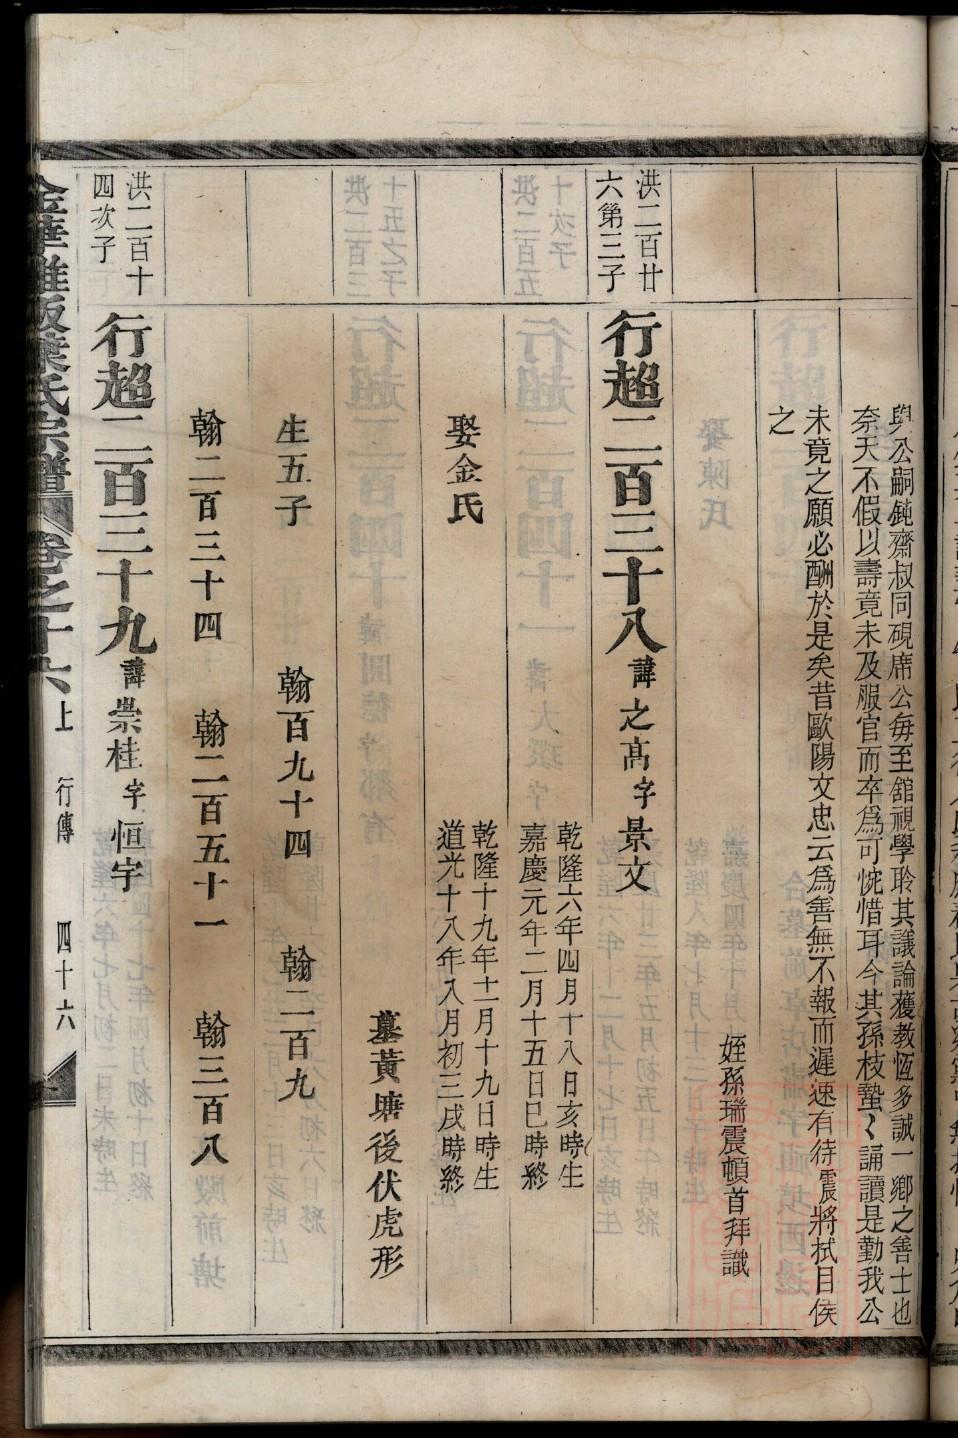 與公嗣鈍齋叔同硯席公每至舘視學聆其議論獲教恆多誠一鄉之善士也
奈天不假以壽竟未及服官而卒爲可惋惜耳今其孫枝蟄〻誦讀是勤我公
未竟之願必酬於是矣昔歐陽文忠云爲善無不報而遲速有待震將拭目俟
之
姪孫瑞震頓首拜識
洪二百廿
六第三子
行超二百三十八諱之髙字景文
乾隆六年四月十八日亥時生
嘉慶元年二月十五日巳時終
娶金氏
乾隆十九年十一月十九日時生
道光十八年八月初三戌時終
墓黃塘後伏虎形
生五子
翰百九十四
翰二百九
翰二百三十四
翰二百五十一
翰三百八
洪二百十
四次子
行超二百三十九諱崇桂字恒宇
葉氏宗譜
卷之十六上
行傳
四十六